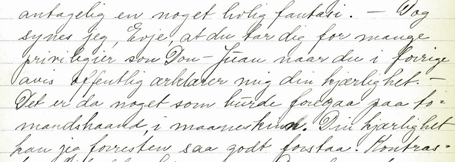 antagelig en noget livlig fantasi. — Dog
synes jeg, Evje, at du tar dig for mange
privilegier som Don-Juan naar du i forrige
avis offentlig erklærer mig din kjærlighet. —
Det er da noget som burde foregaa paa to-
mandshaand, i maaneskin. Din kjærlighet
kan jeg forresten saa godt forstaa. Kontras-